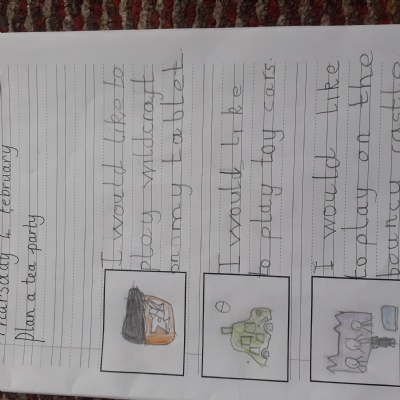 Thursday 4 February
Plan a tea party
I would like to
play wildcraft
on my tablet.
I would like
to play toy cars.
I would like
to play on the
bouncy castle